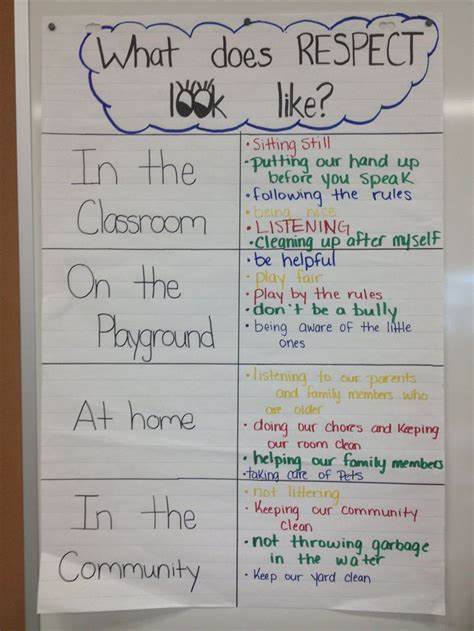 What does RESPECT
look like?
In the
Classroom
• Sitting Still
• putting our hand up
before you speak
• following the rules
• being nice
• LISTENING
• Cleaning up after myself
On the
Playground
• be helpful
• play fair
• play by the rules
• don't be a bully
• being aware of the little
ones
At home
• listening to our parents
and family members who
are older
• doing our chores and Keeping
our room clean
• helping our family members
• taking care of Pets
In the
Community
• not littering
• Keeping our community
clean
• not throwing garbage
in the water
• Keep our yard clean